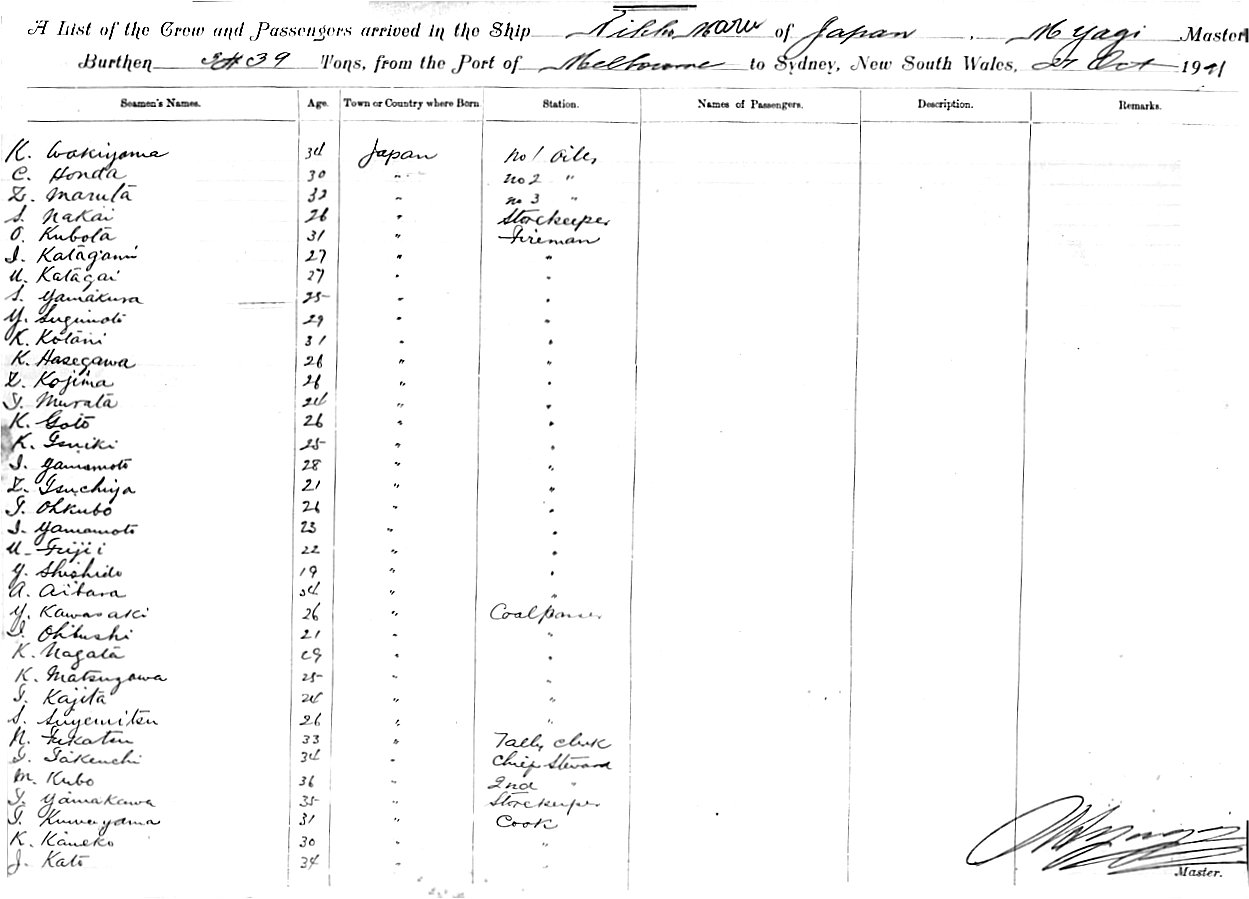 A List of the Crew and Passengers arrived in the Ship Nikko Maru of Japan, M Yagi Master
Burthen 3439 Tons, from the Port of Melbourne to Sydney, New South Wales, 27 Oct 1911
Seamen's Names. Age. Town or Country where Born Station. Names of Passengers. Description. Remarks.
K. Wakiyama 34 Japan no 1 Oiler
C. Honda 30 " no 2 "
Z. Maruta 32 " no 3 "
S. Nakai 26 " Storekeeper
O. Kubota 31 " Fireman
I. Katagami 27 " "
U. Katagai 27 " "
S. Yamakura 25 " "
Y. Sugimoto 29 " "
K. Kotani 31 " "
K. Hasegawa 26 " "
Z. Kojima 26 " "
T. Murata 24 " "
K. Goto 26 " "
K. 25 " "
I. Yamamoto 28 " "
Z. Tsuchiya 21 " "
T. Ohkubo 26 " "
I. Yamamoto 23 " "
U. Fujii 22 " "
Y. Shishido 19 " "
A. Aibara 34 " "
Y. Kawasaki 26 " Coalpasser
21 " "
K. Nagata 29 " "
K. Matsuzawa 25 " "
T. Kajita 24 " "
S. Suyemitsu 26 " "
N. 33 " Tally clerk
T. Takeuchi 34 " Chief Steward
M. Kubo 36 " 2nd "
T. Yamakawa 35 " Storekeeper
T. Kuwayama 31 " Cook
K. Kaneko 30 " "
J. Kato 34 " "
Master.